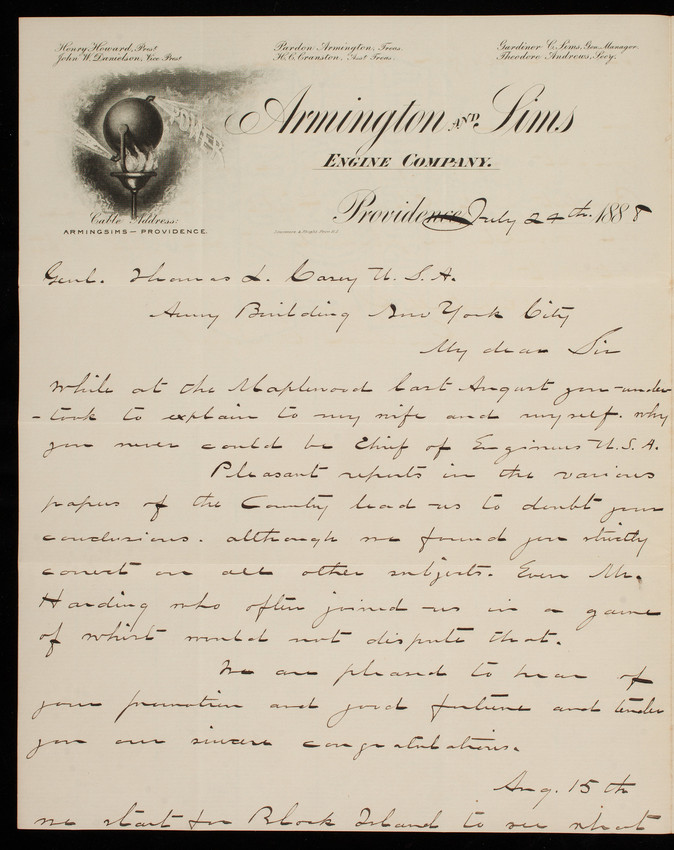 Henry Howard, Prest.
John W. Danielson, Vice Prest.
Pardon Armington, Treas.
H. C. Cranston, Asst. Treas.
Gardiner C. Sims, Gen. Manager.
Theodore Andrews, Secy.
POWER
Armington AND Sims
ENGINE COMPANY.
Cable Address:
ARMINGSIMS — PROVIDENCE.
Providence July 24th. 1888
Genl. Thomas L. Casey U.S.A.
Army Building New York City
My dear Sir
While at the Maplewood last August you under
- took to explain to my wife and myself. why
you never could be Chief of Engineers U.S.A.
Pleasant reports in the various
papers of the Country lead us to doubt your
conclusions. although we found you strictly
correct on all other subjects. Even Mr.
Harding who often joined us in a game
of whist would not dispute that.
We are pleased to hear of
your promotion and good fortune and tender
you our sincere congratulations.
Aug. 15th
we start for Block Island to see what